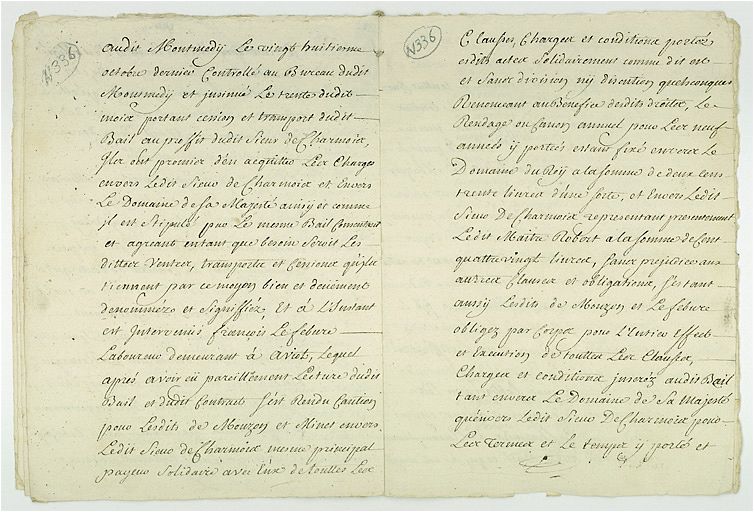 N 336
audit Montmedÿ Le vingt huitieme
octobre dernier Controllé au Bureau dudit
Montmedÿ et insinué Le trente dudit
mois portant cession et transport dudit
Bail au proffit dudit Sieur de Charmois,
Ils ont promier d'en acquitter Les Charges
envers Ledit Sieur de Charmois et Envers
Le Domaine de Sa Majesté ainsÿ et comme
il est Stipulé par Le mesme Bail Consentant
et agreant entant que besoin Seroit Les
dittes Ventes, transports et Cessions qu'ils
tiennent par ce moÿen bien et deuëment
denommées et Signiffiés, Et à L'Instant
est Intervenuë françois Le febure
Laboureur demeurant à Aviot, Lequel
aprés avoir eü pareillement Lecture dudit
Bail et dudit Contrait S'est Rendu Caution
pour Lesdits de Mouzon et Minet envers
Ledit Sieur de Charmois mesme principal
payeur Solidaire avec Eux de touttes Les
N 336
Clauses, Charges et conditions portés
esdits actes Solidairement comme dit est
et Sans division nÿ discution quelconques
Renoncant au Bénéfice desdits droits, Le
Rendage ou Canon annuel pour Les neuf
années ÿ portés estant fixé envers Le
Domaine du Roÿ a la somme de deux cens
trente livres d'une sorte, et Envers Ledit
Sieur De Charmois representant presentement
Ledit Maitre Robert a la somme de Cent
quattre vingt livres, sans prejudice aux
autres Clauses et obligations, S'estant
aussÿ Lesdits de Mouzon et Le febure
obligez par Corps pour L'Entier Effect
et Execution de touttes Les Clauses,
Charges et conditions inseréz audit Bail
tant envers Le Domaine de Sa Majesté
qu'envers Ledit Sieur De Charmois pour
Les Termes et Le temps ÿ porté et